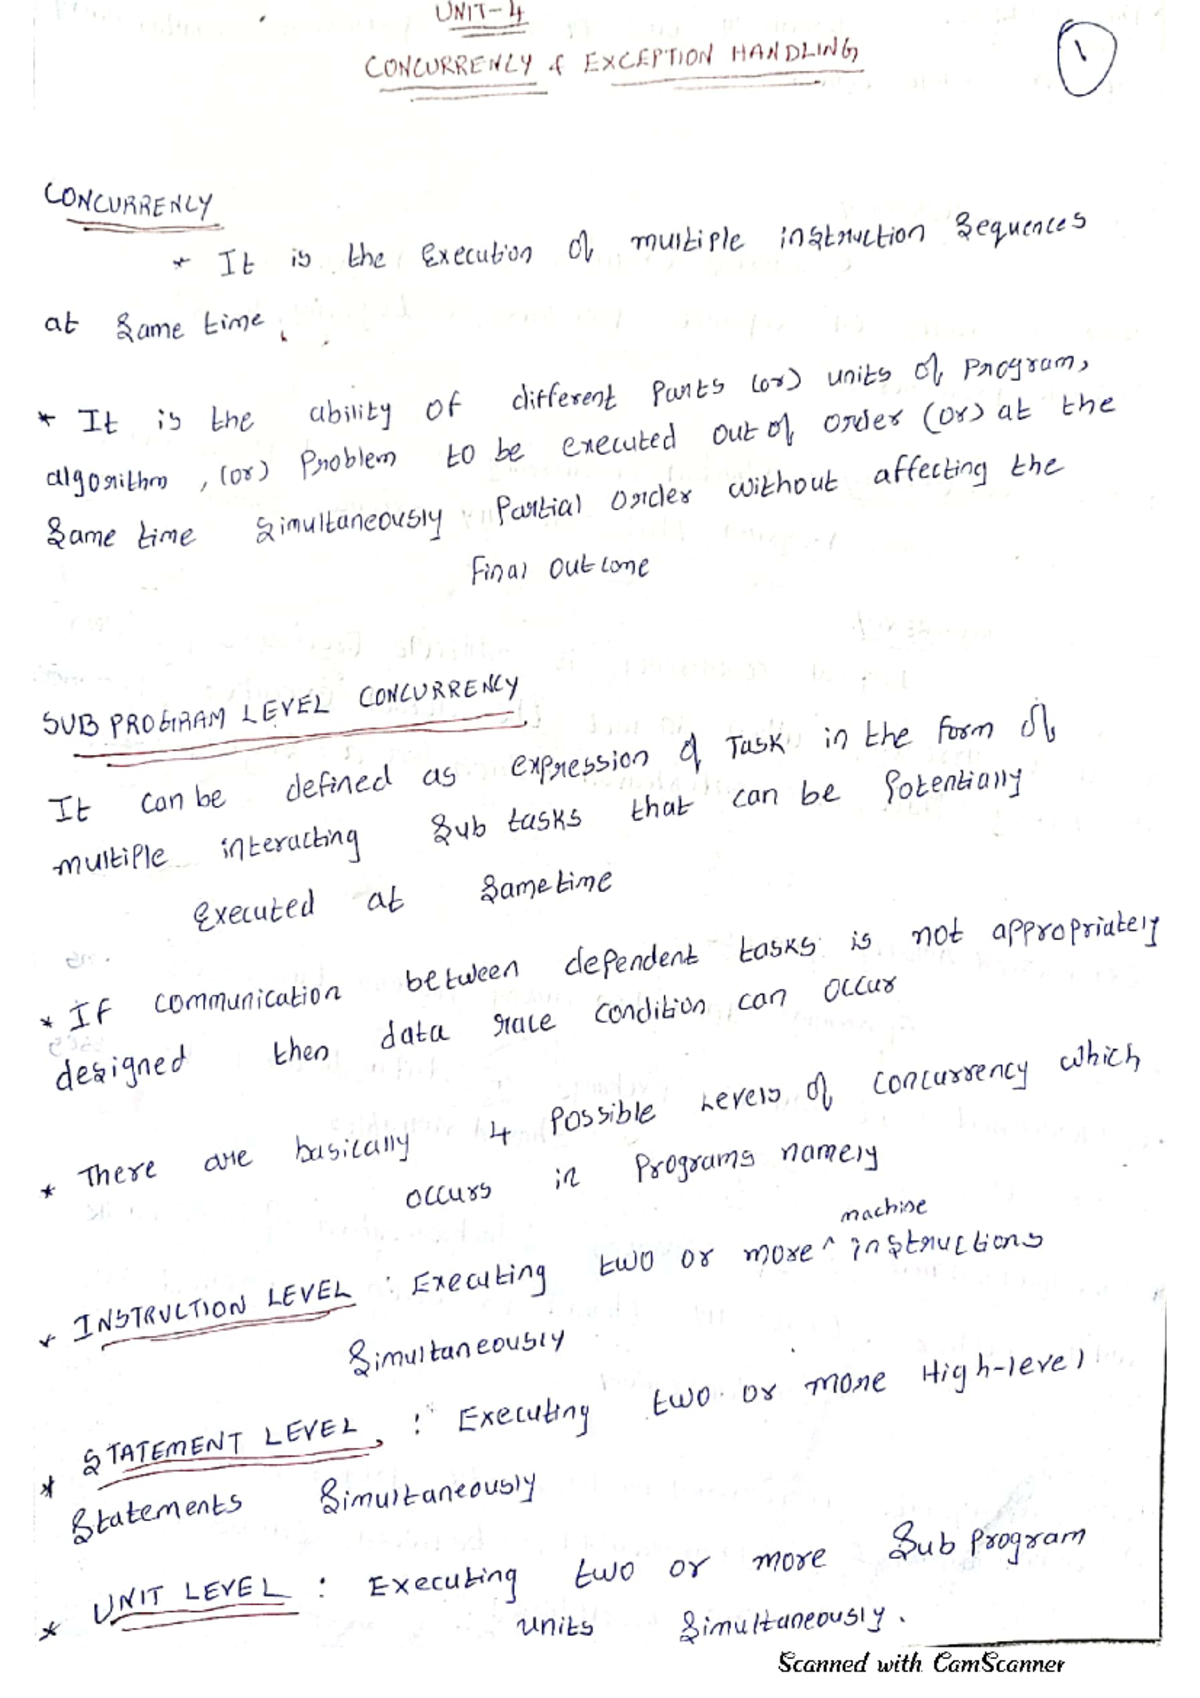 UNIT-4
CONCURRENCY & EXCEPTION HANDLING
1
CONCURRENCY
* It is the Execution of multiple instruction Sequences
at Same time.
* It is the ability of different Parts (or) units of Program,
algorithm, (or) Problem to be executed out of order (or) at the
Same time Simultaneously Partial order without affecting the
Final outcome
SUB PROGRAM LEVEL CONCURRENCY
It can be defined as expression of Task in the form of
multiple interacting Sub tasks that can be Potentially
Executed at Same time
* If communication between dependent tasks is not appropriately
designed then data race condition can occur
* There are basically 4 Possible Levels of concurrency which
occurs in Programs namely
machine
* INSTRUCTION LEVEL : Executing two or more ^ instructions
Simultaneously
* STATEMENT LEVEL : Executing two or more High-level
Statements Simultaneously
* UNIT LEVEL : Executing two or more Sub Program
units Simultaneously.
Scanned with CamScanner